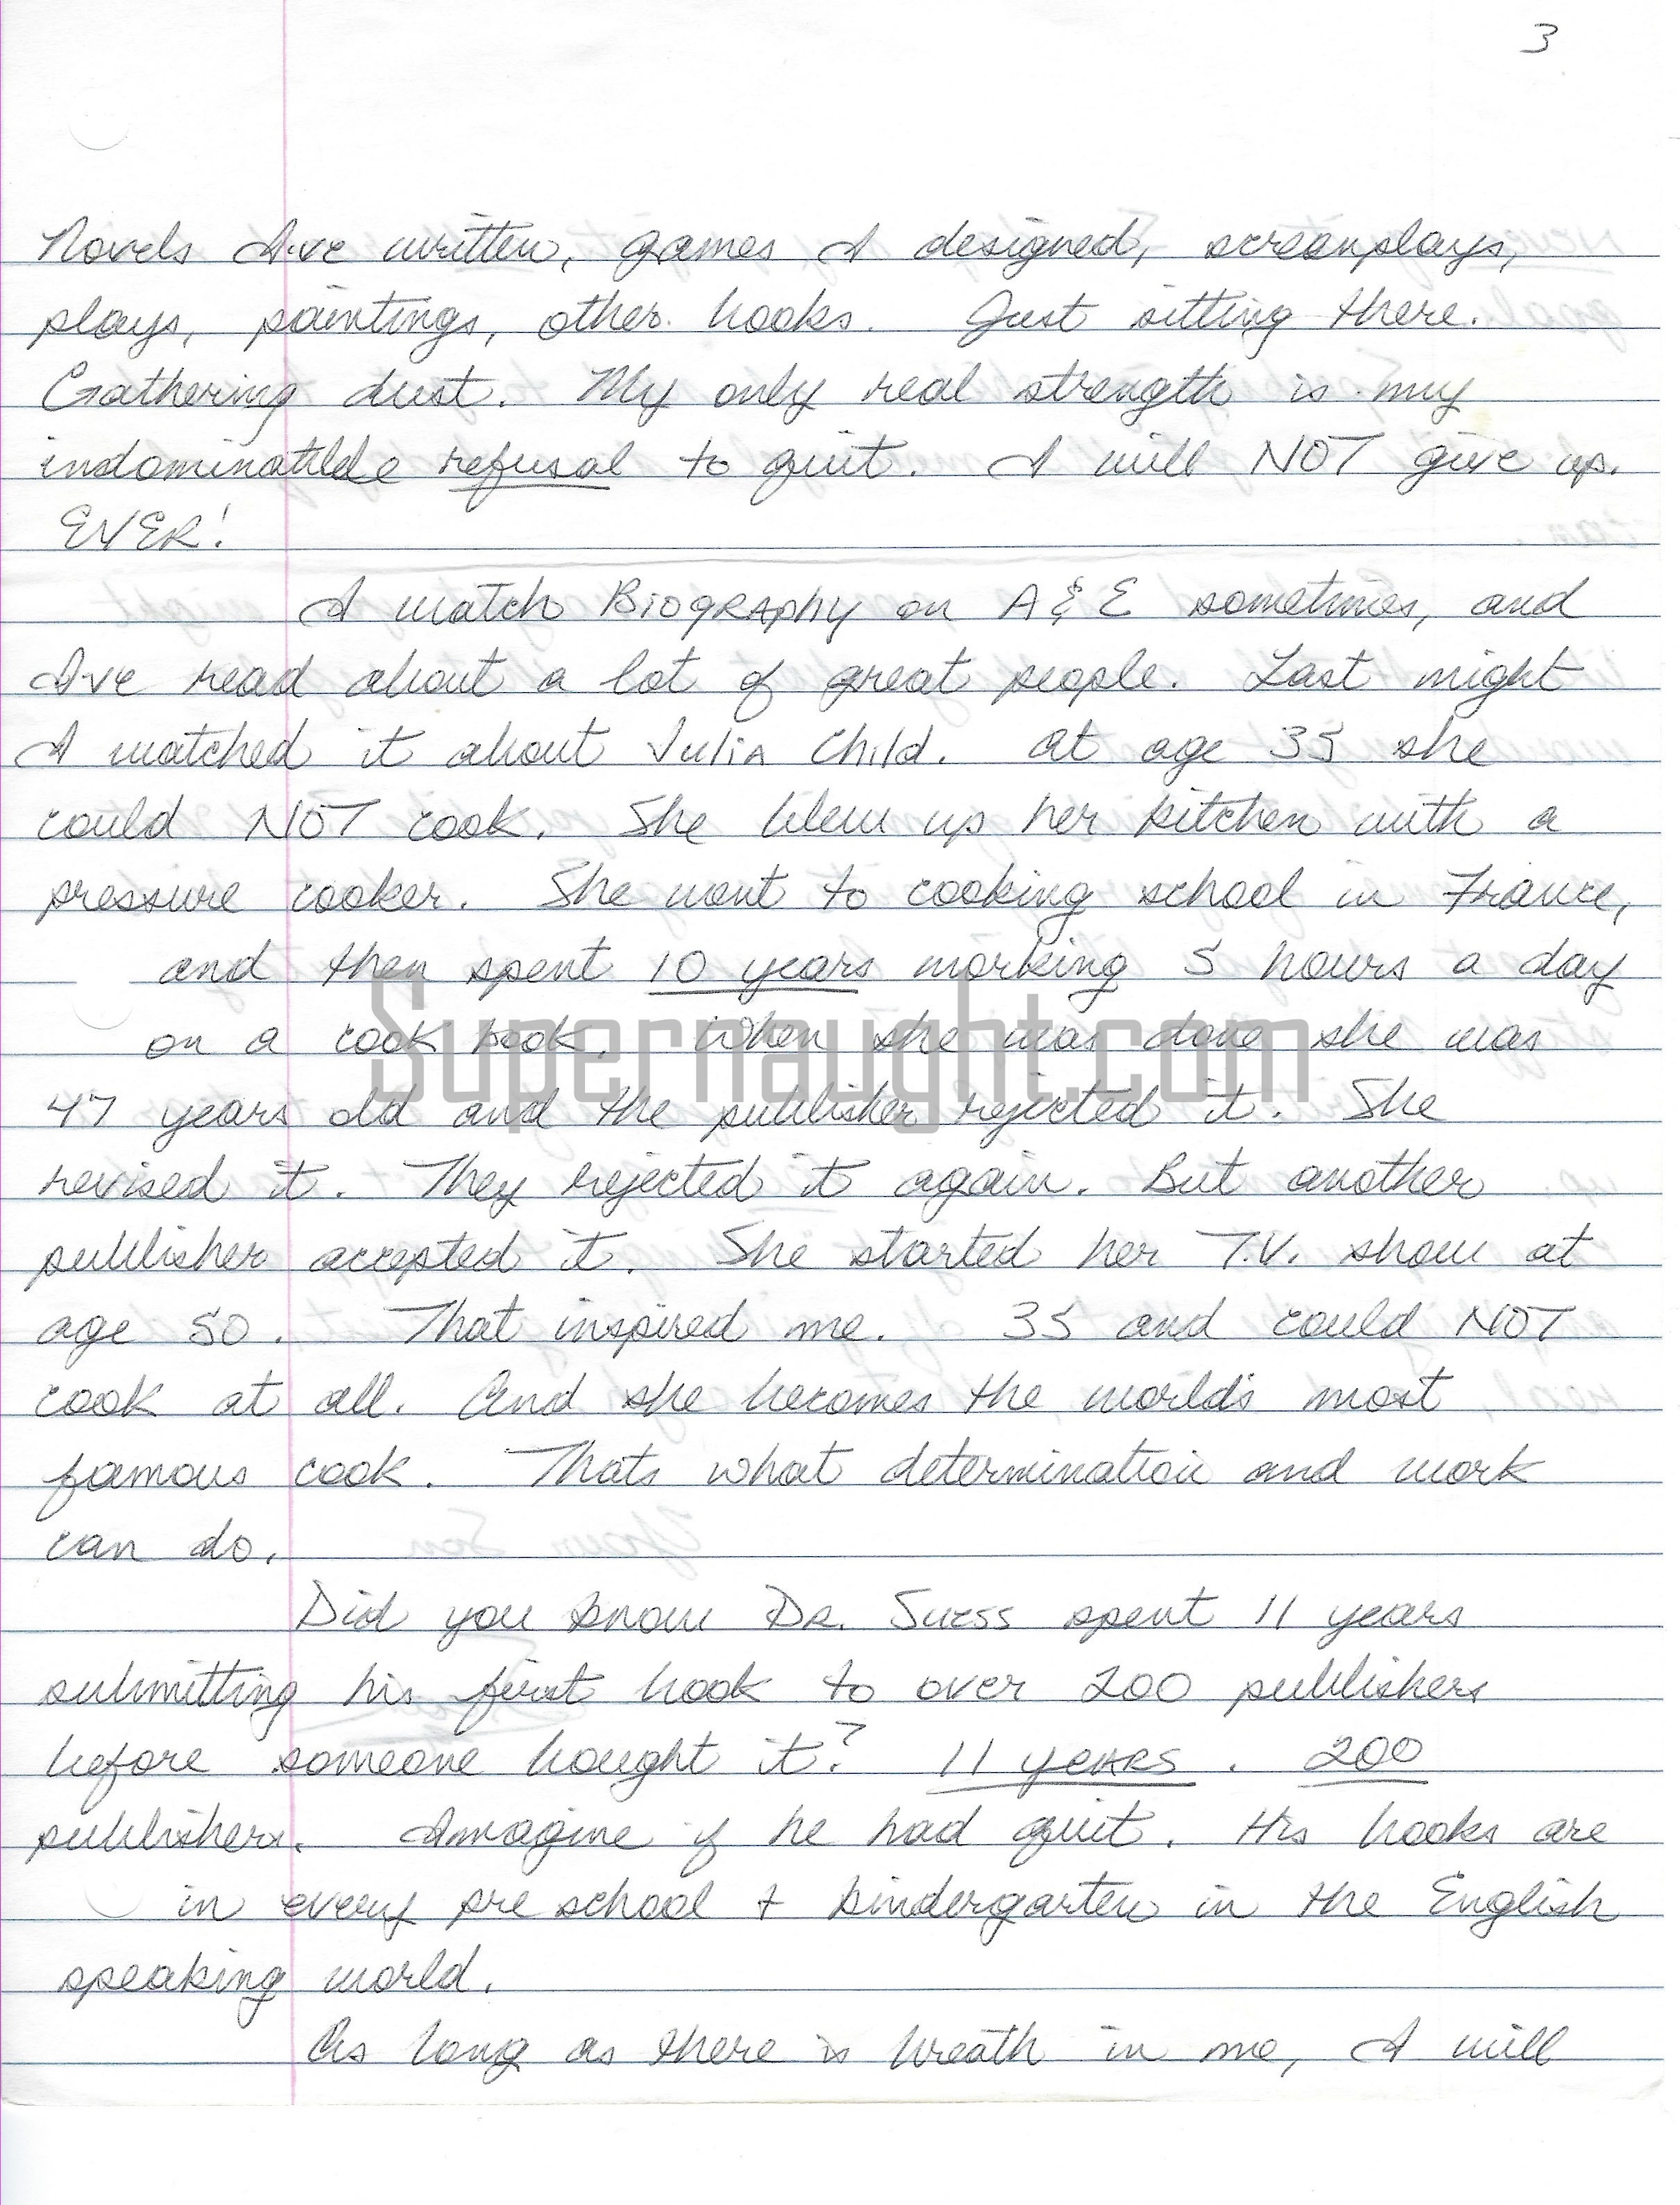 3
Novels I've written, games I designed, screenplays,
plays, paintings, other books. Just sitting there.
Gathering dust. My only real strength is my
refusal to quit. I will NOT give up.
EVER!
I watch BiogRAphy on A&E sometimes, and
I've read about a lot of great people. Last night
I watched it about Julia Child. At age 35 she
could NOT cook. She blew up her kitchen with a
pressure cooker. She went to cooking school in France,
and then spent 10 years working 5 hours a day
on a cook book. When she was done she was
Supernaught.com
47 years old and the publisher rejected it. She
revised it. They rejected it again. But another
publisher accepted it. She started her T.V. show at
age 50. That inspired me. 35 and could NOT
cook at all. And she becomes the world's most
famous cook. Thats what determination and work
can do.
Did you know DR. Suess spent 11 years
submitting his first book to over 200 publishers
before someone bought it? 11 yeARs. 200
publishers. Imagine if he had quit. His books are
in every pre school + kindergarten in the English
speaking world.
As long as there is breath in me, I will